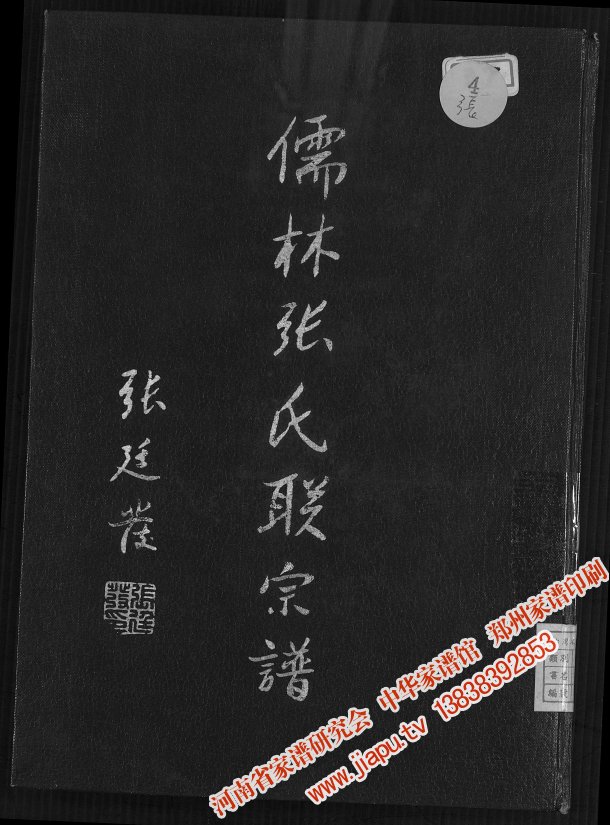 儒林张氏联宗譜
张廷發
张廷
發印
河南省家谱研究会 中华家谱馆 郑州家谱印刷
www.jiapu.tv 13838392853